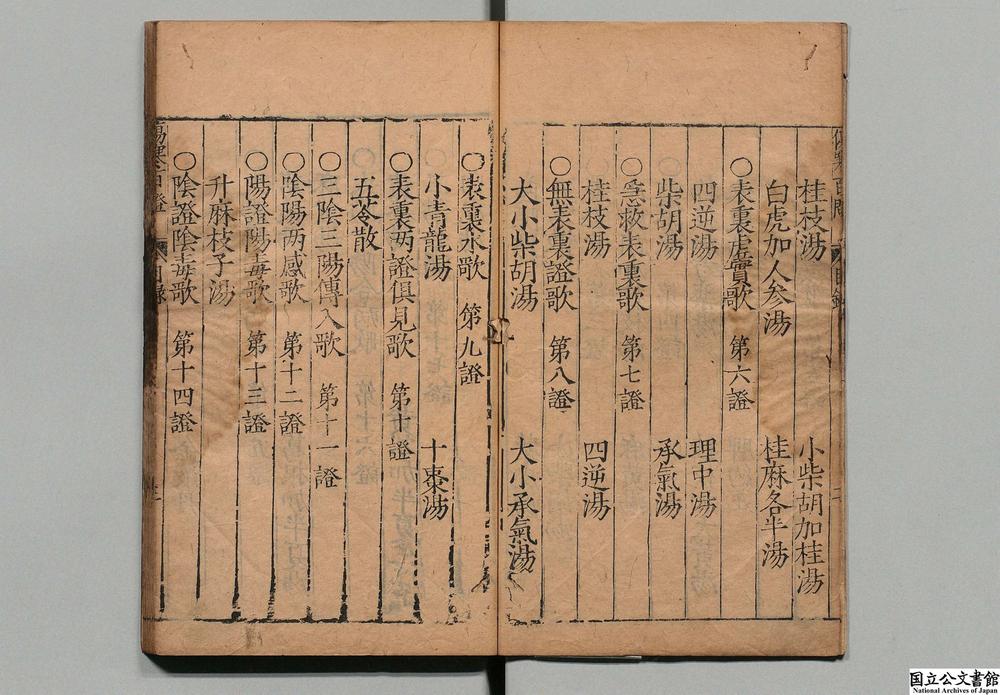 桂枝湯 小柴胡加桂湯
白虎加人參湯 桂麻各半湯
○表裏虛實歌 第六證
四逆湯 理中湯
柴胡湯 承氣湯
○急救表裏歌 第七證
桂枝湯 四逆湯
○無表裏證歌 第八證
大小柴胡湯 大小承氣湯
○表裏水歌 第九證
小青龍湯 十棗湯
○表裏兩證俱見歌 第十證
五苓散
○三陰三陽傳入歌 第十一證
○陰陽兩感歌 第十二證
○陽證陽毒歌 第十三證
升麻枝子湯
○陰證陰毒歌 第十四證
傷寒百證 目錄
国立公文書館
National Archives of Japan